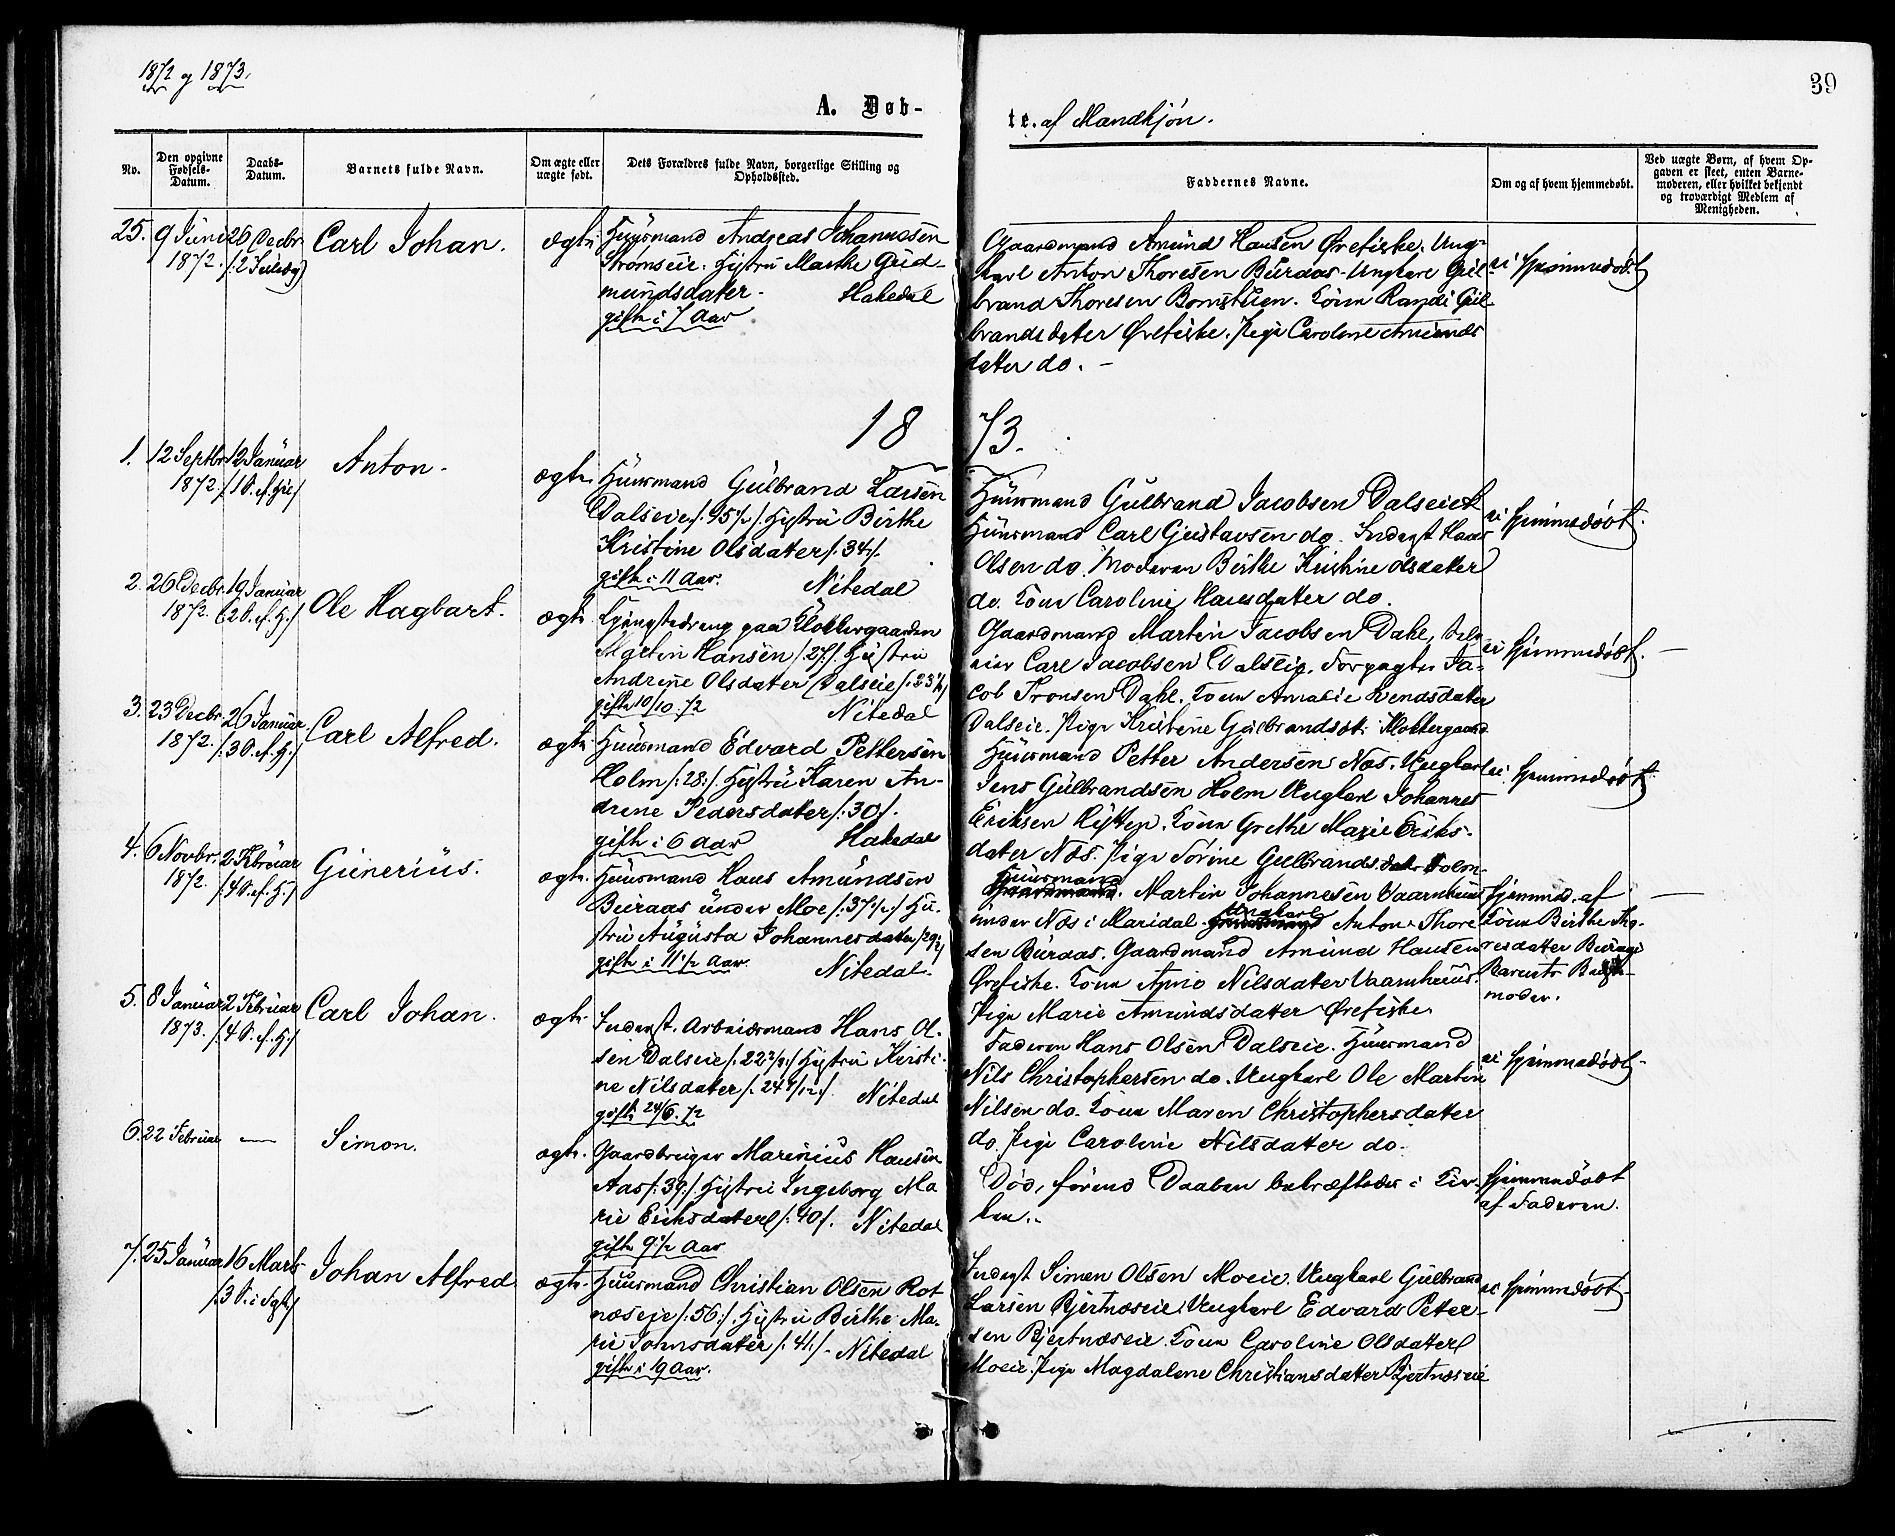 1872 og 1873.
39
A. Døb-
te. af Mandkjøn.
No.
Den opgivne Fødsels-Datum.
Daabs-Datum.
Barnets fulde Navn.
Om ægte eller uægte født.
Dets Forældres fulde Navn, borgerlige Stilling og Opholdssted.
Faddernes Navne.
Om og af hvem hjemmedøbt.
Ved uægte Børn, af hvem Op-
gaven er skeet, enten Barne-
moderen, eller hvilket bekjendt
og troværdigt Medlem af
Menigheden.
25. 9 Juni 1872. 26 Decbr. /:2 Juledg/
Carl Johan.
ægte
Huusmand Andreas Johannesen
Strømseie. Hustru Marthe Gud-
mundsdater. Hakedal
gift i 7 Aar
Gaardmand Amund Hansen Ørefiske. Ung-
karl Anton Thoresen Buraas. Ungkarl Gul-
brand Thoresen Bornstuen. Kone Randi Gul-
brandsdater Ørefiske. Pige Caroline Amunds
dater do. –
ei hjemmedøbt
1873.
1. 12 Septbr 1872. 12 Januar /1 S. ef. /
Anton.
ægte
Huusmand Gulbrand Larsen
Dalseie /:45½/. Hustru Birthe
Kristine Olsdatter /:34/.
gift i 11 Aar. Nitedal
Huusmand Gulbrand Jacobsen Dalseiet
Huusmand Carl Gustavsen do. Inderst Hans
Olsen do. Moderen Birthe Kristine Olsdatter
do. Kone Caroline Hansdatter do.
ei hjemmedøbt.
2. 26 Decbr. 1872. 19 Januar /2 S. ef. H./
Ole Hagbart.
ægte
paa Klokkergaarden
Martin Hansen /:27/. Hustru
Andrine Olsdater Dalseie /:23½/
gift 10/10. 72 Nitedal
Gaardmand Martin Jacobsen Dahl, Selv
eier Carl Jacobsen Dalseie. Forpagter Ja-
cob Tronsen Dahl. Kone Amalie Svendsdater
Dalseie. Pige Kristine Gulbrandsdt. Klokkergaard
ei hjemmedøbt. –
3. 23 Decbr. 1872. 26 Januar /:3 S. ef. H./
Carl Alfred.
ægte
Huusmand Edvard Pettersen
Holm /:28:/ Hustru Karen An-
drine Pedersdater /:30/.
gift i 6 Aar Hakedal
Huusmand Petter Andersen Næs. Ungkarl
Jens Gulbrandsen Holm Ungkarl Johannes
Eriksen Hytten. Kone Grethe Marie Eriks-
dater Næs. Pige Sørine Gulbrandsdater Holm.
ei hjemmedøbt.
4. 6 Novbr. 1872. 2 Februar /4 S. ef. H:/
Gunerius.
ægte.
Huusmand Hans Amundsen
Buraas under Moe /:37½/ Hu-
stru Augusta Johannesdater /29½/
gift i 11½ Aar. Nitedal.
Huusmand
Gaardmand. Martin Johannesen Vaarnhuus
under Næs i Maridal. Ungkarl Anton Thore
sen Buraas. Gaardmand Amund Hansen
Ørefiske. Kone Nilsdater Vaarnhuus.
Pige Marie Amundsdatter Ørefiske
hjemmed. af
Kone Birthe Tho-
resdatter Buraas
Barnets Beste-
moder. –
5. 8 Januar 1873. 2 Februar /:4 S. ef. H:/
Carl Johan.
ægte.
Inderst. Arbeidsmand Hans Ol-
sen Dalseie /:22 Hustru Kristi-
ne Nilsdater /:24 Nitedal
gift 24/6. 72
Faderen Hans Olsen Dalseie. Huusmand
Nils Christophersen do. Ungkarl Ole Martin
Nilsen do. Kone Maren Christophersdatter
do. Pige Caroline Nilsdater do.
ei hjemmedøbt.
6. 22 Februar –
Simon.
ægte.
Gaardbruger Marinius Hansen
Aas /:39:/ Hustru Ingeborg Ma
rie Eriksdater /:40/. Nitedal
gift 9½ Aar
Død, førend Daaben bekræftedes i Kir-
ken.
hjemmedøbt
af Faderen.
7. 25 Januar 16 Marts /3 S. i Fast/
Johan Alfred
ægte.
Huusmand Christian Olsen Rot
næseie /:56:/ Hustru Birthe Ma-
rie Johnsdater /:41:/. Nitedal
gift i 19 Aar.
Inderst Simen Olsen Moeie. Ungkarl Gulbrand
Larsen Bjertnæseie. Ungkarl Edvard Peter-
sen Bjertnæseie. Kone Caroline Olsdatter
Moeie. Pige Magdalene Christiansdatter Bjertnæseie
ei hjemmedøbt.